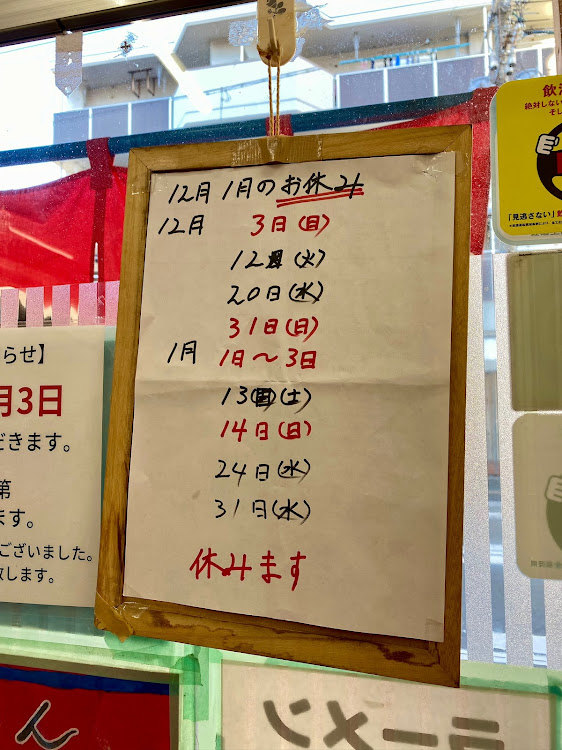 12月 1月のお休み
12月 3日(日)
12日(火)
20日(水)
31日(日)
1月 1日〜3日
13日(土)
14日(日)
24日(水)
31日(水)
休みます
らせ】
月3日
だきます。
第
ます。
ございました。
致します。
飲酒
絶対しない
「見逃さない」
ん
ラーメン